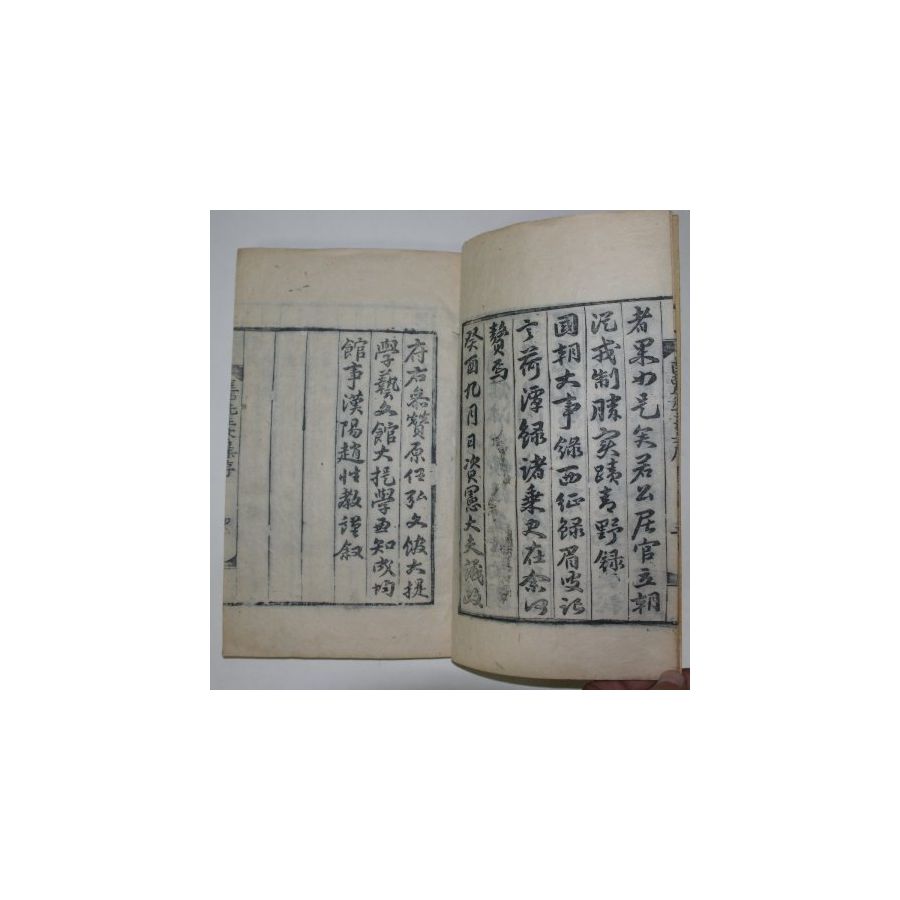 者果如是矣若公居官立朝
況戎制勝實蹟青野錄
國朝大事錄西征錄眉叟記
言荷潭錄諸乘更在余何
贅焉
癸酉九月日資憲大夫議政
府右參贊原任弘文館大提
學藝文館大提學兼知成均
館事漢陽趙性教謹叙